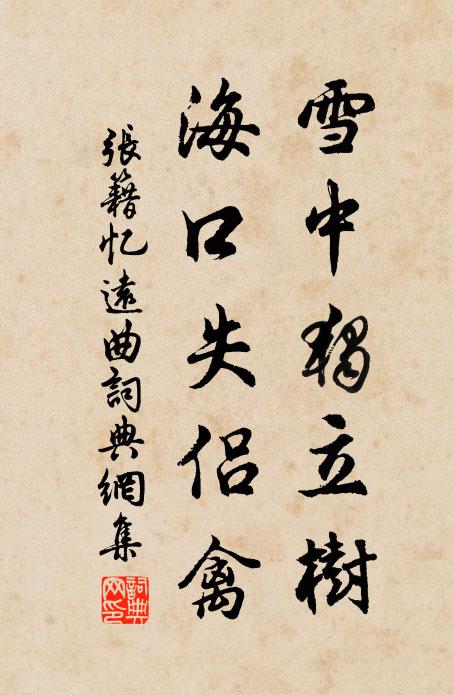 雪中獨立樹
海口失侶禽
張籍忆遠曲詞典網集
詞典
网印